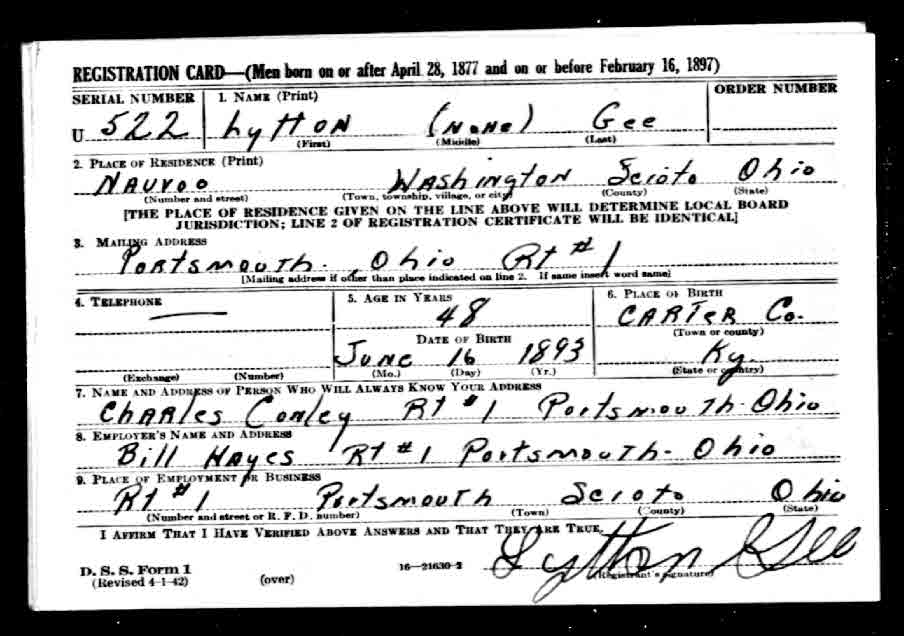 REGISTRATION CARD—(Men born on or after April 28, 1877 and on or before February 16, 1897)
SERIAL NUMBER 1. NAME (Print) ORDER NUMBER
U 522 Lytton (None) Gee
(First) (Middle) (Last)
2. PLACE OF RESIDENCE (Print)
Nauvoo Washington Scioto Ohio
(Number and street) (Town, township, village, or city) (County) (State)
[THE PLACE OF RESIDENCE GIVEN ON THE LINE ABOVE WILL DETERMINE LOCAL BOARD
JURISDICTION; LINE 2 OF REGISTRATION CERTIFICATE WILL BE IDENTICAL]
3. MAILING ADDRESS
Portsmouth, Ohio Rt #1
[Mailing address if other than place indicated on line 2. If same insert word same]
4. TELEPHONE 5. AGE IN YEARS 6. PLACE OF BIRTH
48 Carter Co.
(Town or county)
DATE OF BIRTH
June 16 1893 Ky.
(Exchange) (Number) (Mo.) (Day) (Yr.) (State or country)
7. NAME AND ADDRESS OF PERSON WHO WILL ALWAYS KNOW YOUR ADDRESS
Charles Conley Rt #1 Portsmouth-Ohio
8. EMPLOYER'S NAME AND ADDRESS
Bill Hayes Rt #1 Portsmouth-Ohio
9. PLACE OF EMPLOYMENT OR BUSINESS
Rt #1 Portsmouth Scioto Ohio
(Number and street or R. F. D. number) (Town) (County) (State)
I AFFIRM THAT I HAVE VERIFIED ABOVE ANSWERS AND THAT THEY ARE TRUE.
Lytton Gee
D. S. S. Form 1 16—21630-2 (Registrant's signature)
(Revised 4-1-42) (over)